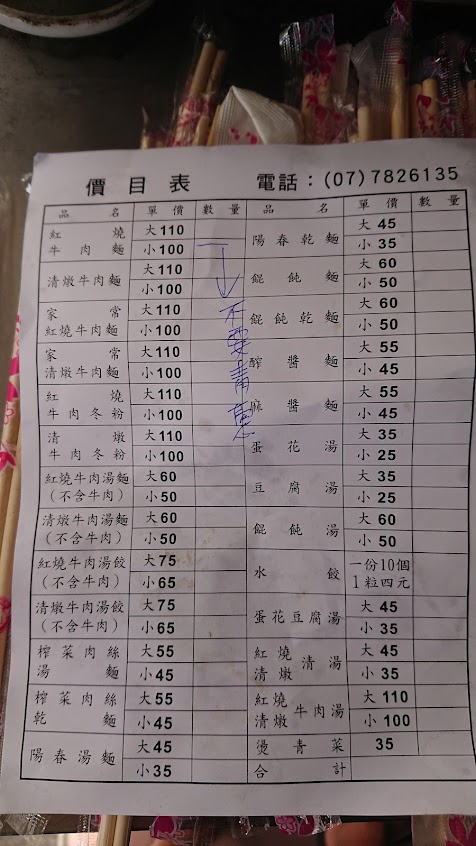 價目表 電話：(07)7826135
品名 單價 數量
紅燒牛肉麵 大110
小100 一
清燉牛肉麵 大110
小100
家常紅燒牛肉麵 大110
小100
家常清燉牛肉麵 大110
小100
紅燒牛肉冬粉 大110
小100
清燉牛肉冬粉 大110
小100
紅燒牛肉湯麵（不含牛肉） 大60
小50
清燉牛肉湯麵（不含牛肉） 大60
小50
紅燒牛肉湯餃（不含牛肉） 大75
小65
清燉牛肉湯餃（不含牛肉） 大75
小65
榨菜肉絲湯麵 大55
小45
榨菜肉絲乾麵 大55
小45
陽春湯麵 大45
小35
不要青
品名 單價 數量
陽春乾麵 大45
小35
餛飩麵 大60
小50
餛飩乾麵 大60
小50
醡醬麵 大55
小45
麻醬麵 大55
小45
蛋花湯 大35
小25
豆腐湯 大35
小25
餛飩湯 大60
小50
水餃 一份10個
1粒四元
蛋花豆腐湯 大45
小35
紅燒清燉清湯 大45
小35
紅燒清燉牛肉湯 大110
小100
燙青菜 35
合計